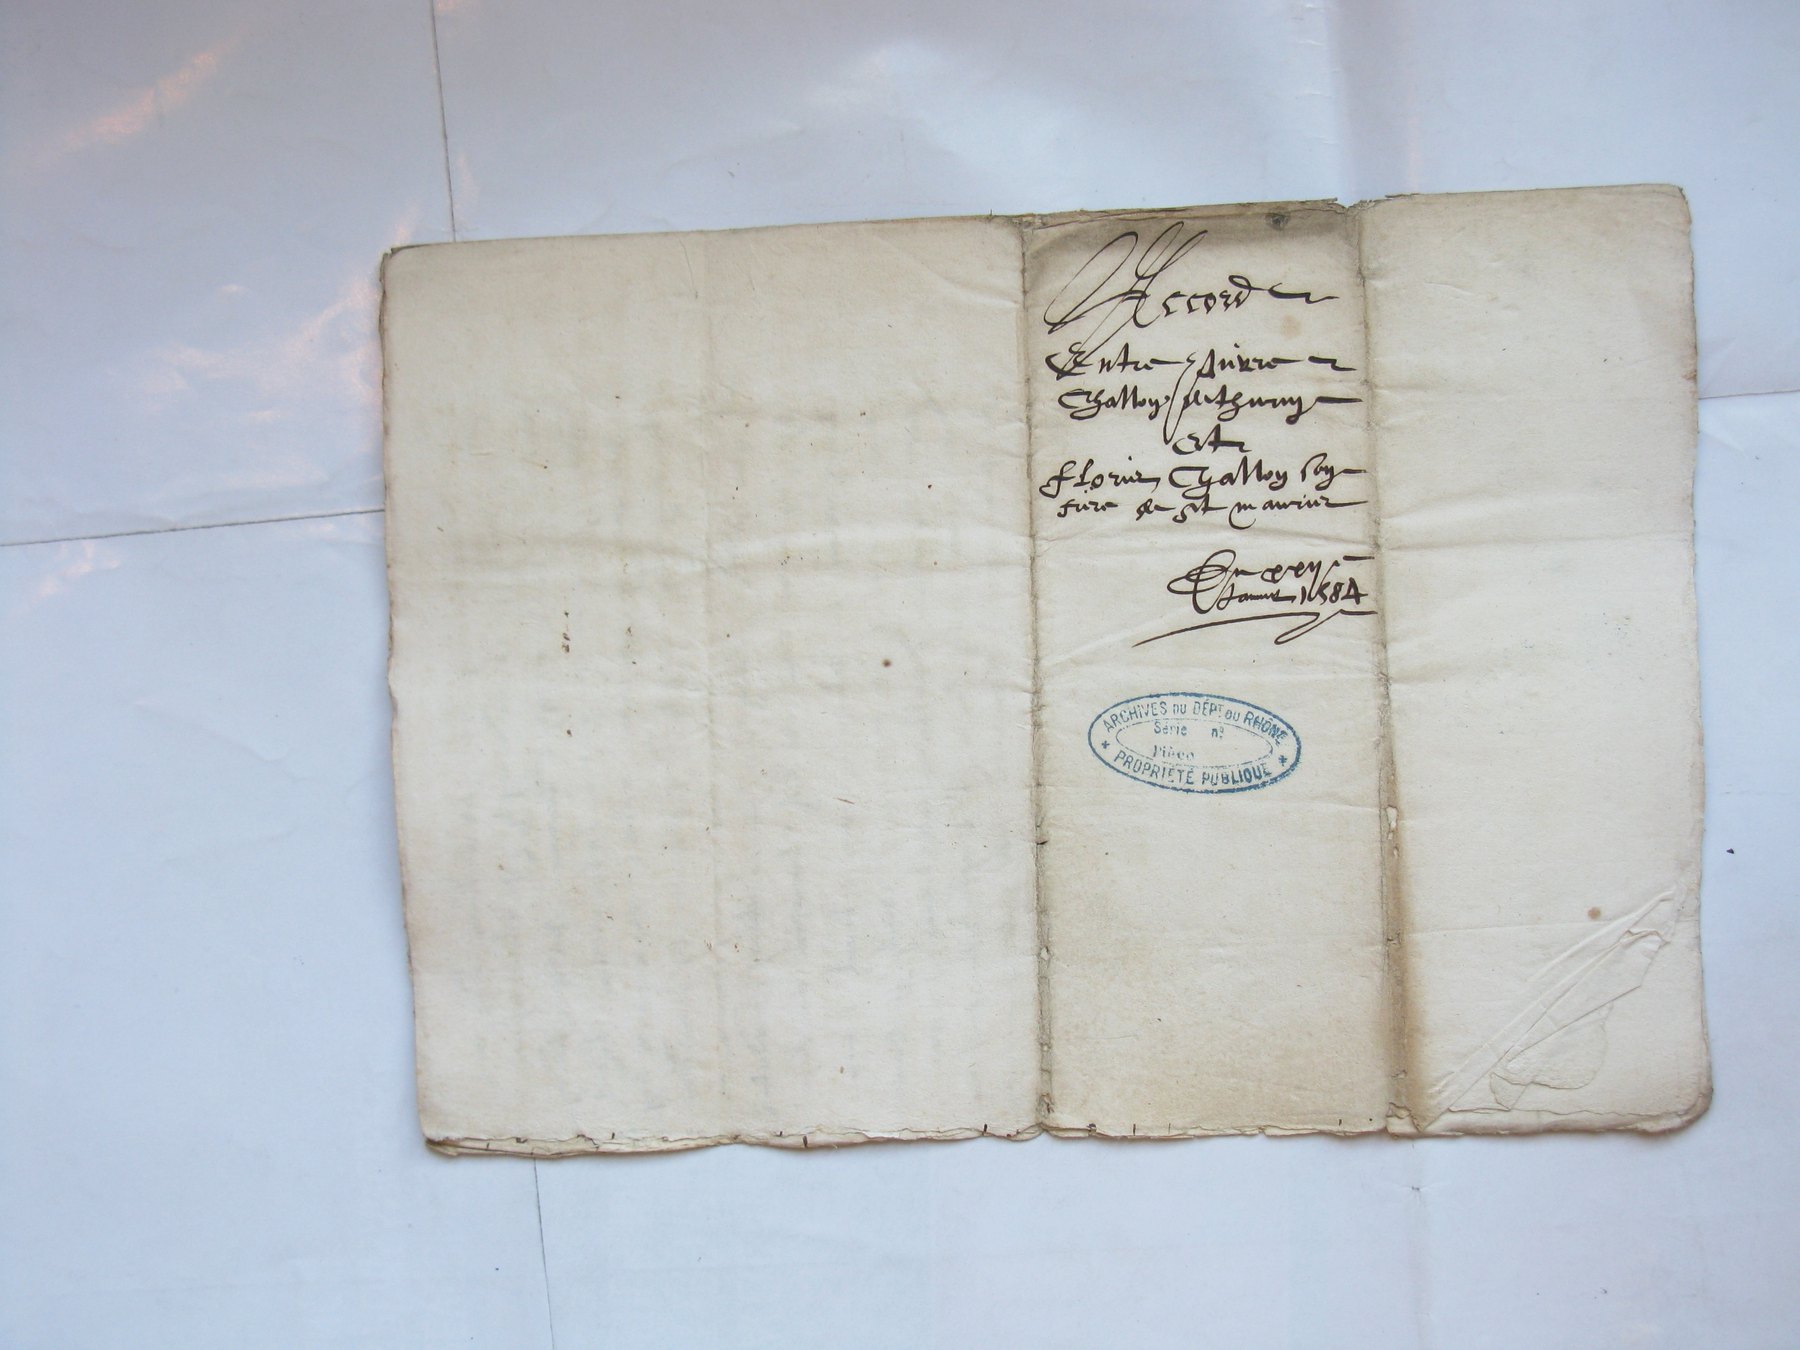 Accord
Entre pierre
Challoy de thurny
Et
floris Challoy son
frere de st maurice
Du xxvj
Janvier 1584
ARCHIVES DU DÉPT. DU RHÔNE
Série n°
Pièce
PROPRIÉTÉ PUBLIQUE